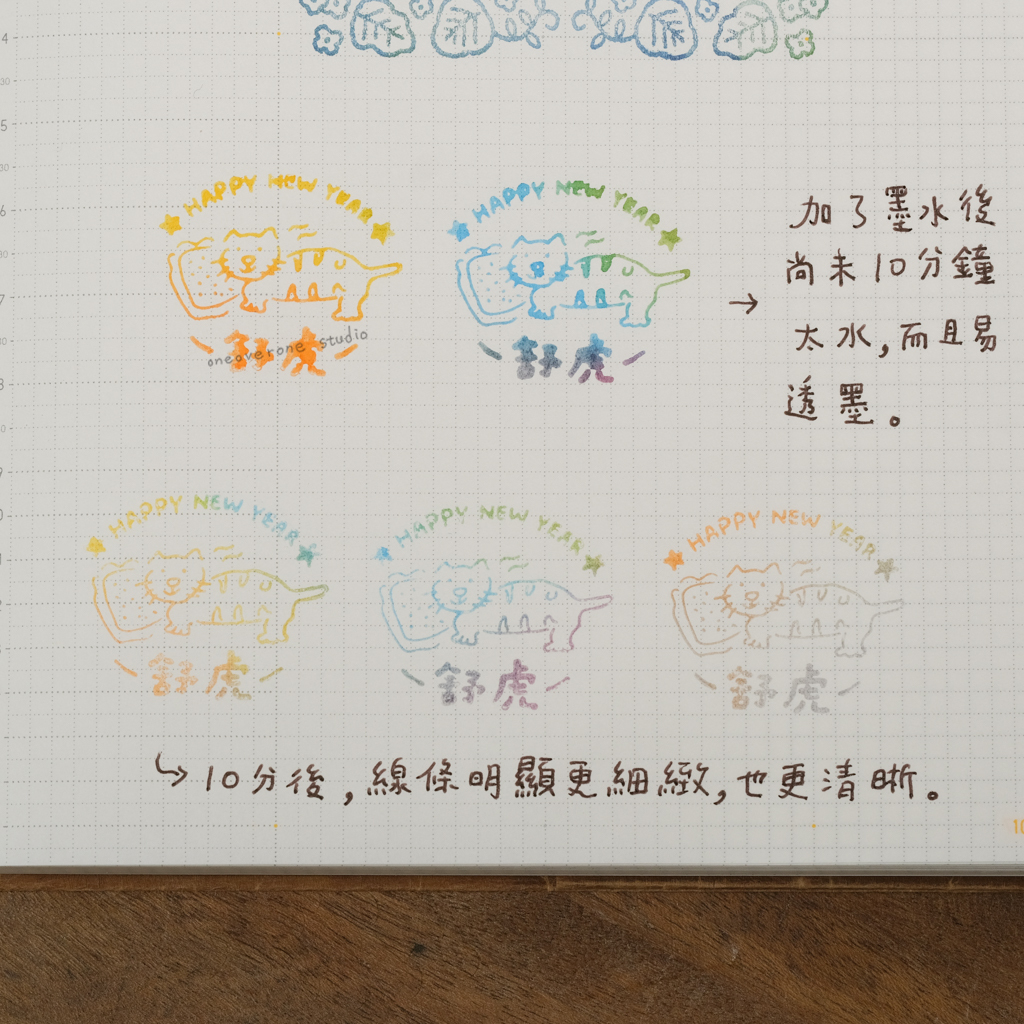 HAPPY NEW YEAR
舒虎
oneoverone studio
HAPPY NEW YEAR
舒虎
加了墨水後
尚未10分鐘
太水,而且易
透墨。
HAPPY NEW YEAR
舒虎
HAPPY NEW YEAR
舒虎
HAPPY NEW YEAR
舒虎
10分後,線條明顯更細緻,也更清晰。